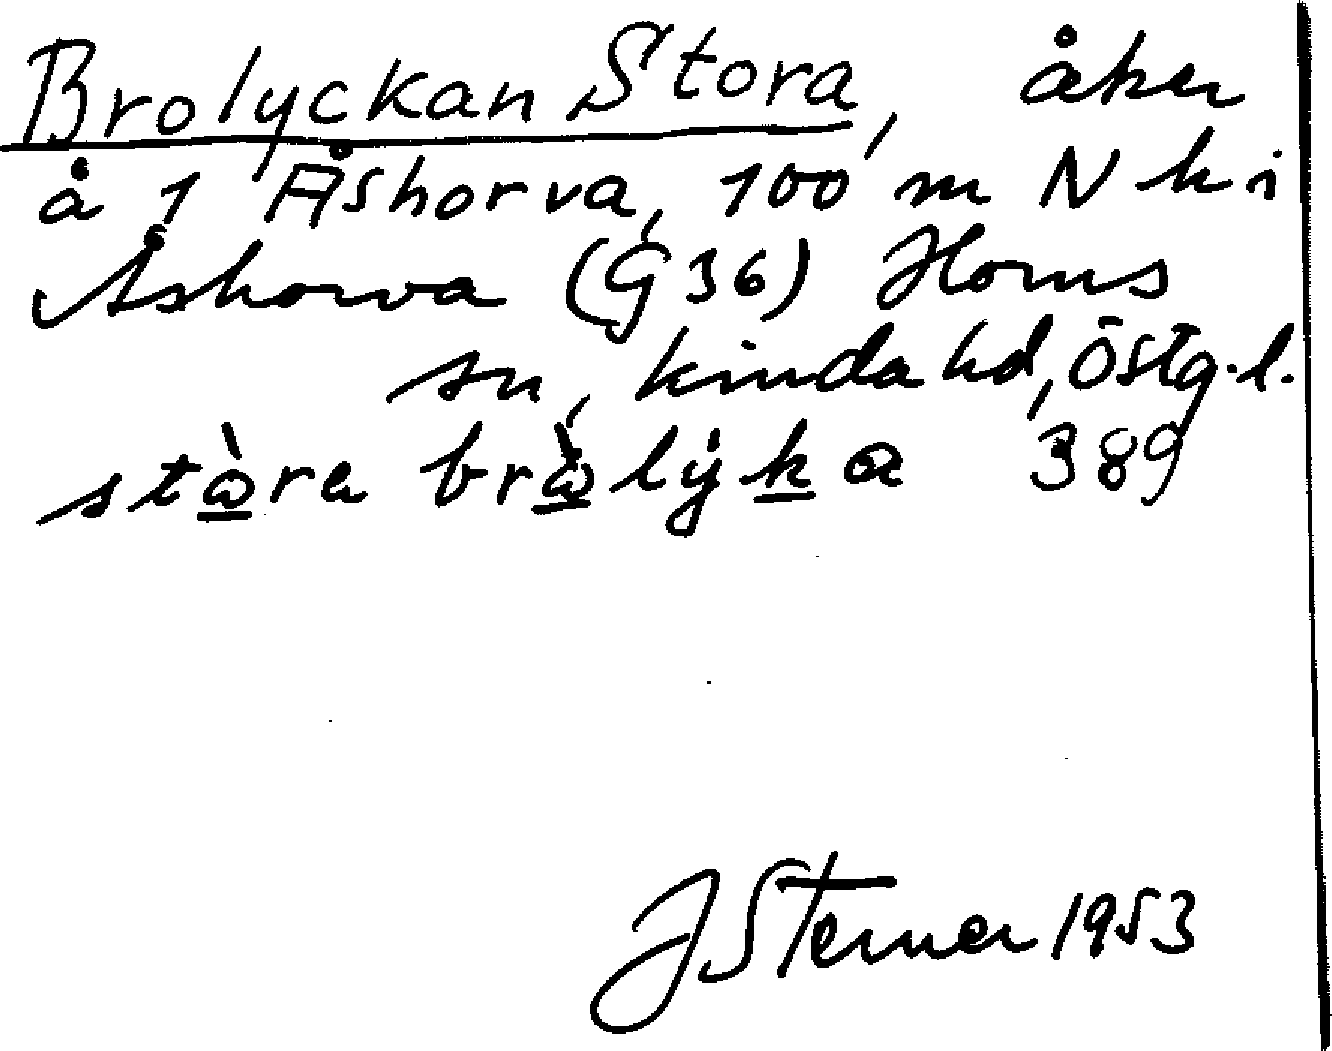 Brolyckan Stora, åker
å 1 Åshorva, 100 m N k i
Åshorva (G 36) Horns
sn, Kinda hd, Östg. l.
stàra bràlýka 389
J Sterner 1953